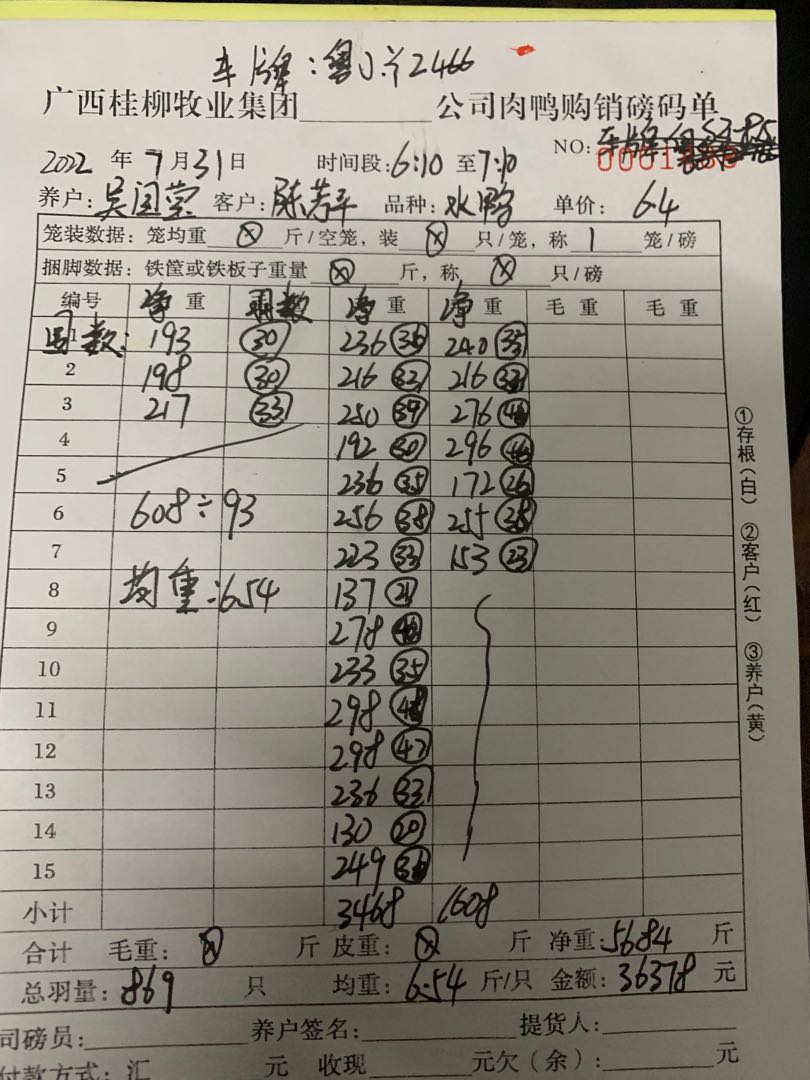 车牌:粤J
广西桂柳牧业集团 公司肉鸭购销磅码单
NO:
2022 年 7 月 31 日 时间段:6:10 至 7:10
养户:吴国荣 客户:陈芳平 品种:水鸭 单价:6.4
笼装数据:笼均重 ⊗ 斤/空笼,装 ⊗ 只/笼,称 1 笼/磅
捆脚数据:铁筐或铁板子重量 ⊗ 斤,称 ⊗ 只/磅
编号 净重 羽数 净重 净重 毛重 毛重
1 193 30 236 240 35
2 198 30 216 216
3 217 33 250 39 276
4 192 30 296
5 236 35 172 26
6 608÷93 256 38 255 38
7 223 33 153 23
8 均重:6.54 137 21
9 278
10 233 35
11 298
12 298 47
13 236 33
14 130 20
15 249
小计 3468 1608
合计 毛重:⊗ 斤 皮重:⊗ 斤 净重:5684 斤
总羽量:869 只 均重:6.54 斤/只 金额:36378 元
司磅员: 养户签名: 提货人:
付款方式:汇 元 收现 元欠(余): 元
①存根(白) ②客户(红) ③养户(黄)